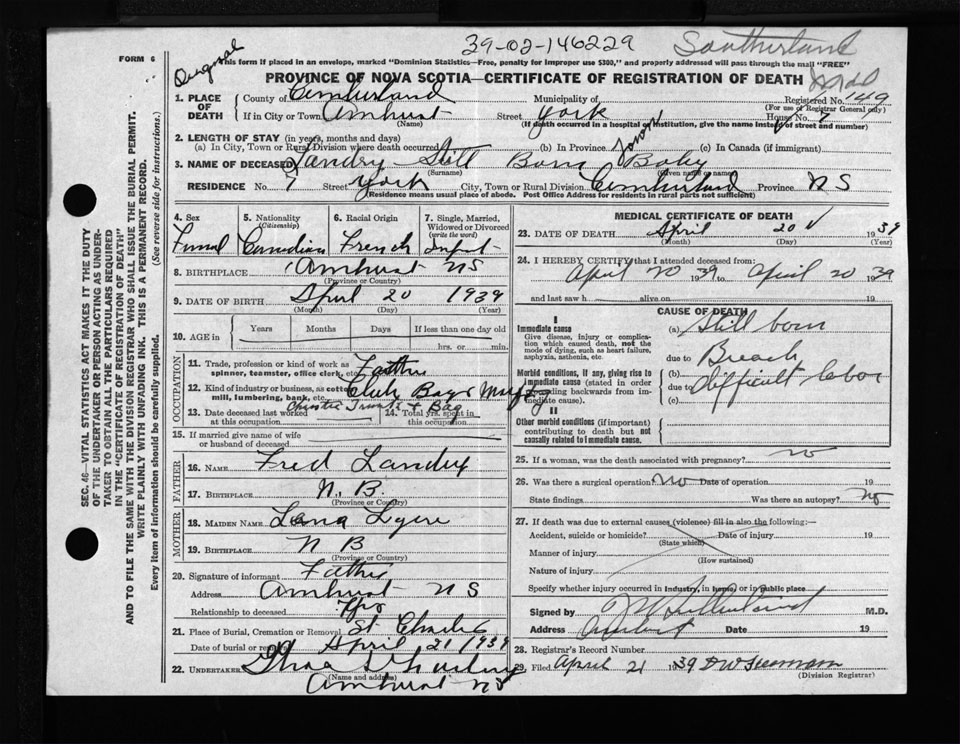 39-02-146229
Southerland
FORM 6
Original
This form if placed in an envelope, marked "Dominion Statistics—Free, penalty for improper use $300," and properly addressed will pass through the mail "FREE"
PROVINCE OF NOVA SCOTIA—CERTIFICATE OF REGISTRATION OF DEATH
1. PLACE OF DEATH County of Cumberland Municipality of Registered No. 149
(For use of Registrar General only)
If in City or Town Amherst Street York House No. 7
(Name) (If death occurred in a hospital or institution, give the name instead of street and number)
2. LENGTH OF STAY (in years, months and days)
(a) In City, Town or Rural Division where death occurred (b) In Province (c) In Canada (if immigrant)
3. NAME OF DECEASED Landry - Still Born Baby
(Surname) (Given name or name)
RESIDENCE No. 7 Street York City, Town or Rural Division Cumberland Province N S
(Residence means usual place of abode. Post Office Address for residents in rural parts not sufficient)
4. Sex 5. Nationality (Citizenship) 6. Racial Origin 7. Single, Married, Widowed or Divorced (write the word)
Canadian French Infant
8. BIRTHPLACE Amherst NS
(Province or Country)
9. DATE OF BIRTH April 20 1939
(Month) (Day) (Year)
10. AGE in Years Months Days If less than one day old
hrs. or min.
OCCUPATION
11. Trade, profession or kind of work as spinner, teamster, office clerk, etc.
12. Kind of industry or business, as cotton mill, lumbering, bank, etc.
13. Date deceased last worked at this occupation 14. Total yrs. spent in this occupation
15. If married give name of wife or husband of deceased
FATHER
16. NAME Fred Landry
17. BIRTHPLACE N. B.
(Province or Country)
MOTHER
18. MAIDEN NAME Lena
19. BIRTHPLACE N B
(Province or Country)
20. Signature of informant Father
Address Amherst N S
Relationship to deceased
21. Place of Burial, Cremation or Removal St Charles
Date of burial or removal April 21 1939
22. UNDERTAKER
(Name and address)
Amherst NS
MEDICAL CERTIFICATE OF DEATH
23. DATE OF DEATH April 20 1939
(Month) (Day) (Year)
24. I HEREBY CERTIFY that I attended deceased from:
April 20 1939 to April 20 1939
and last saw h alive on 19
CAUSE OF DEATH
I
Immediate cause (a) Still born
Give disease, injury or complication which caused death, not the mode of dying, such as heart failure, asphyxia, asthenia, etc.
due to Breach
Morbid conditions, if any, giving rise to immediate cause (stated in order proceeding backwards from immediate cause).
(b)
due to difficult labor
(c)
II
Other morbid conditions (if important) contributing to death but not causally related to immediate cause.
25. If a woman, was the death associated with pregnancy? no
26. Was there a surgical operation No Date of operation 19
State findings Was there an autopsy? no
27. If death was due to external causes (violence) fill in also the following:—
Accident, suicide or homicide? Date of injury 19
(State which)
Manner of injury
(How sustained)
Nature of injury
Specify whether injury occurred in Industry, in home, or in public place
Signed by Sutherland M.D.
Address Amherst Date 19
28. Registrar's Record Number
29. Filed April 21 1939
(Division Registrar)
SEC. 46—VITAL STATISTICS ACT MAKES IT THE DUTY
OF THE UNDERTAKER OR PERSON ACTING AS UNDERTAKER TO OBTAIN ALL THE PARTICULARS REQUIRED
IN THE "CERTIFICATE OF REGISTRATION OF DEATH"
AND TO FILE THE SAME WITH THE DIVISION REGISTRAR WHO SHALL ISSUE THE BURIAL PERMIT.
WRITE PLAINLY WITH UNFADING INK. THIS IS A PERMANENT RECORD.
Every item of information should be carefully supplied. (See reverse side for instructions.)